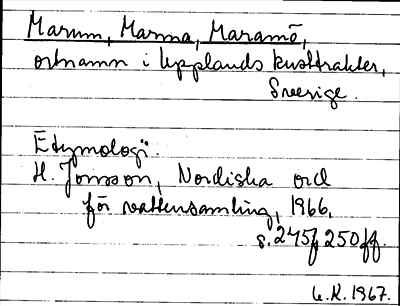 Marum, Marma, Maramö,
ortnamn i Upplands kusttrakter,
Sverige.
Etymologi:
H. Jonsson, Nordiska ord
för vattensamling, 1966,
s. 245f, 250 ff.
U.K. 1967.